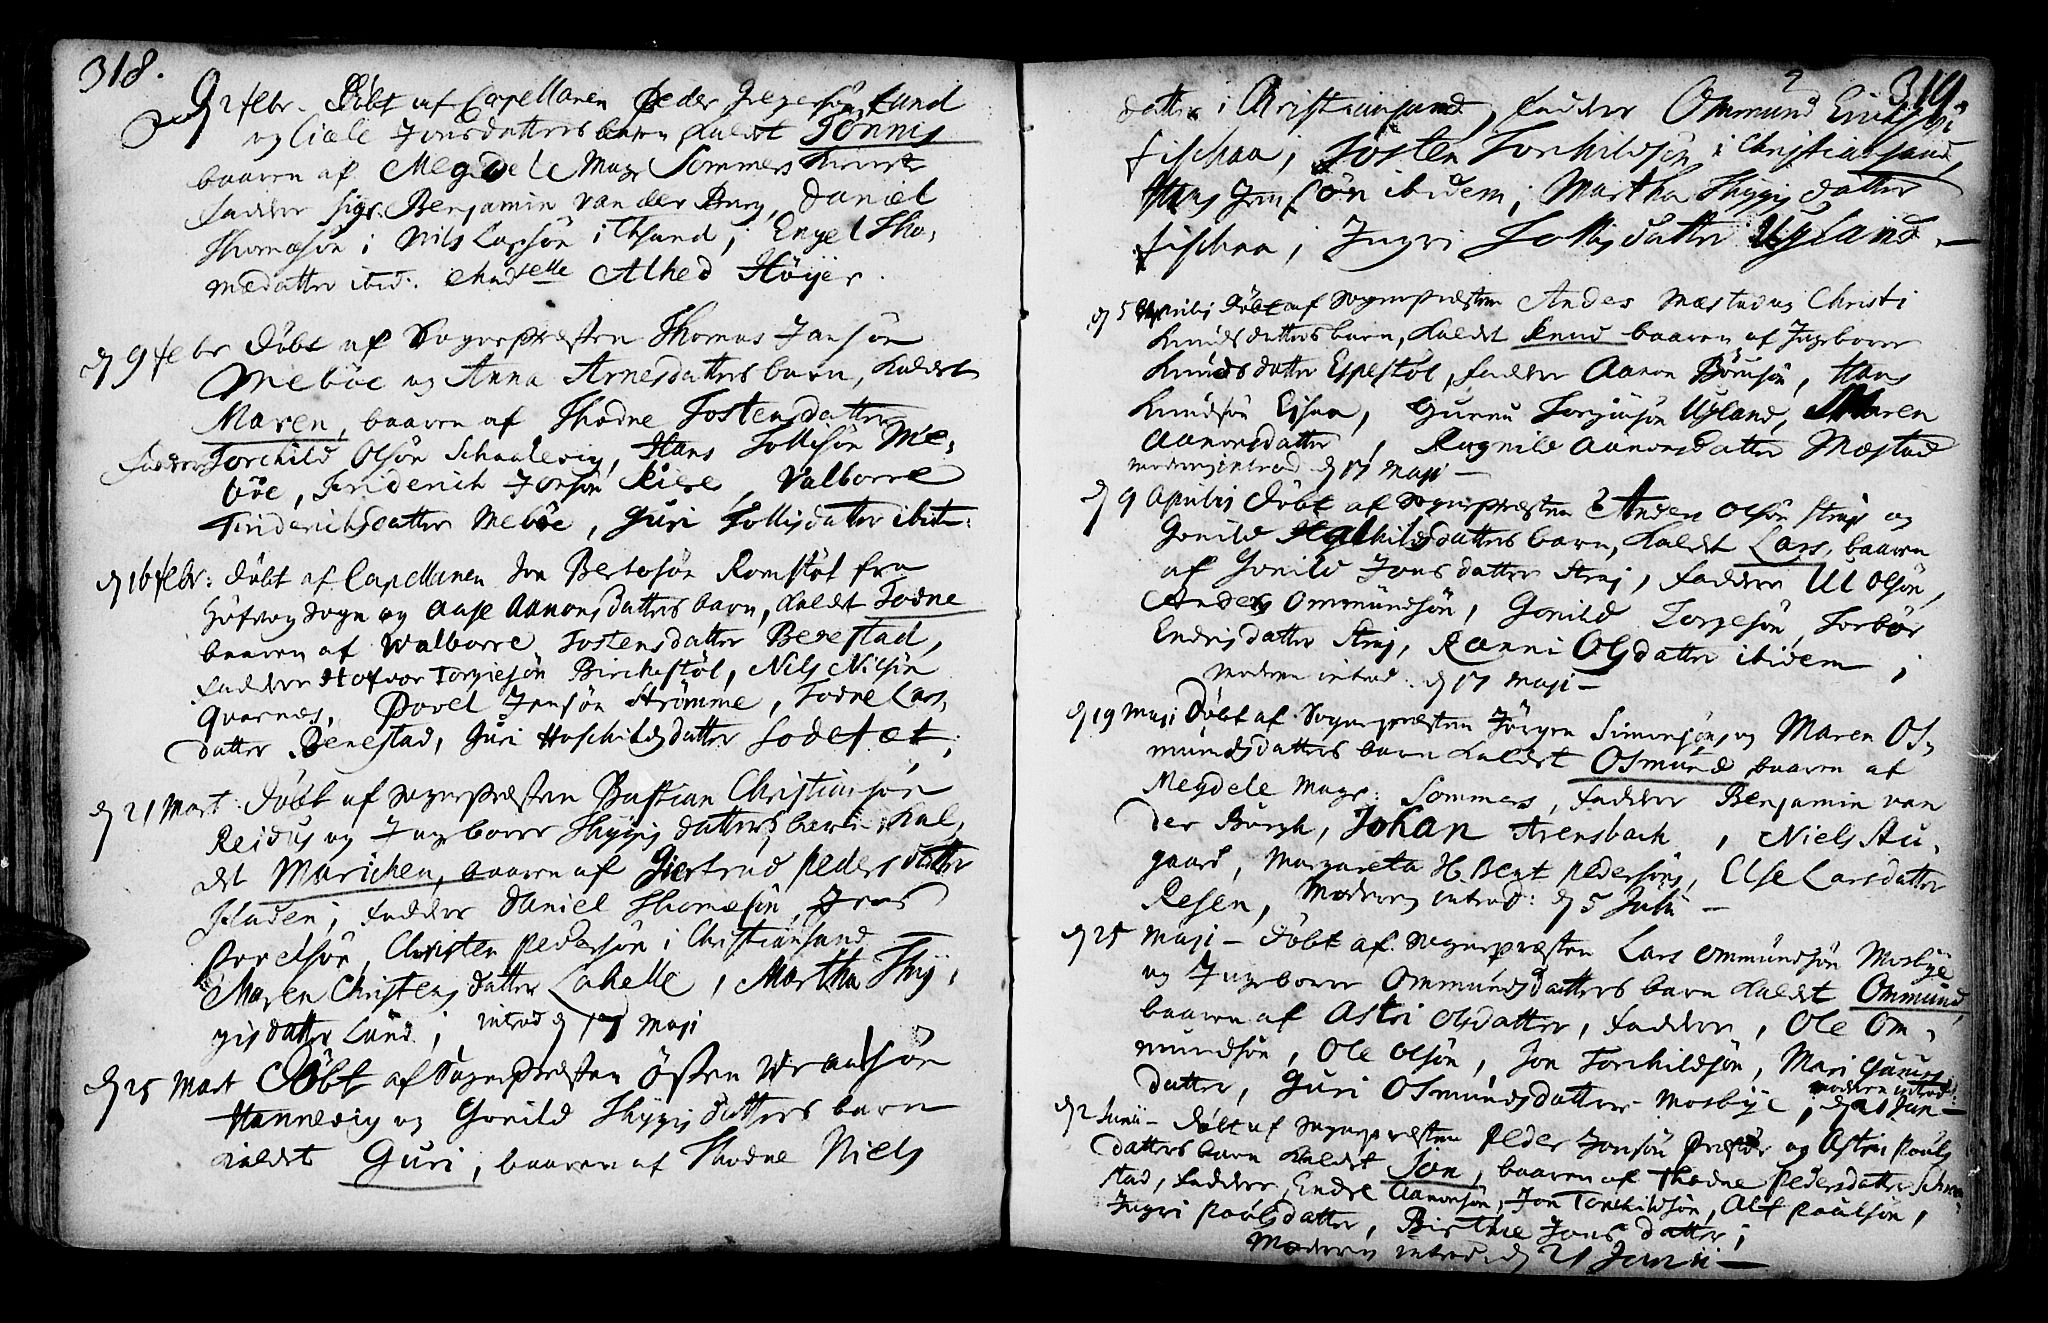 318.
d 2 febr. Døbt af Capellanen Peder Gregersøn Lund
og Ciäle Jonsdatters barn kaldet Tönnis
baaren af Megdele Magr Sommers
Fadder Sigr. Benjamin van der Burg, Daniel
Thomæsön i Nils Larsön i Chsand, Engel Tho,
mædatter ibid. Madselle Alhed Höyer.
d 9 febr Døbt af Sognepræsten Thomas Jansøn
Meböe og Anna Arnesdatters barn, kaldet
Maren, baaren af Thodne Tostensdatter
Fadder Torchild Olsön Schaalevig, Hans Tollisön Me,
böe, Friderich Jonsön Kiere, Valborre
Friderichsdatter Meböe, Guri Tollisdatter ibid:
d 16 febr: døbt af Capellanen Jon Bertosön Romstöl fra
Höfvog Sogn og Aase Aanonsdatters barn, kaldet Todne
baaren af Walborre Tostensdatter Benestad,
Fadder Hofvor Torgiesön Birchestöl, Nils Nilsön
Qvarnes, Povel Jensön Strömme, Todne Lars,
datter Benestad, Guri Hoschildsdatter Sodefæt;
d 21 Mart: Døbt af Sognepræsten Bastian Christiansön
Reidus og Ingborer Thygis datters barn kal,
det Marichen, baaren af Giertrud Peders datter
Fladen; Fadder Daniel Thomæsön, Jens
Povelsön, Christen Pedersön i Christiansand
Maren Christens datter Lahelle, Martha Thy,
gis datter Lund; introd d 17 Maji
d 25 Mart Døbt af Sognepræsten Østen Wraalsön
Hannevig og Gonild Thygis datters barn
kaldet Guri, baaren af Thodne Niels
319.
datter i Christiansand, Fadder Ommund Erichsön
Fischaa, Tosten Torchildsön i Christiansand,
Hans Jensön ibidem; Martha Thygis datter
Fischaa, Ingri Tollis datter Ugland. —
d 5 Aprilis Døbt af Sognepræsten Andes Mæstad og Christi
Knuds datters barn, kaldet Knud baaren af Ingborer
Knuds datter Espestöl, Fadder Aanon Börusön, Hans
Knudsön Eisaa, Gunnu Torgiusön Ugland, Maren
Aanonsdatter, Ragnild Aanonsdatter Mæstad
moderen introd d 17 Maji —
d 9 Aprilis Døbt af Sognepræsten Anders Olsön Straj og
Gonild datters barn, kaldet Lars, baaren
af Gonild Jons datter Straj, Fadder Ul Olsön,
Anders Ommundsön, Gonild Torgesön, Torbör
Endrisdatter Straj, Ranni Olsdatter ibidem;
moderen introd: d 17 Maji —
d 19 Maji Døbt af Sognepræsten Jörgen Simonsöns og Maren Os,
mundsdatters barn kaldet Osmund baaren af
Megdele Magr: Sommers, Fadder Benjamin van
der Burgh, Johan Arensbach, Niels Au,
gaard, Margareta H. Bent Pedersöns, Else Larsdatter
Resen, Moderen introd: d 5 Julii —
d 25 Maji — Døbt af Sognepræsten Lars Ommundsön Mosbye
og Ingborer Ommundsdatters barn kaldet Ommund,
baaren af Astri Olsdatter, Fadder, Ole Om,
mundsön, Ole Olsön, Jon Torchildsön, Mari Gunnes
datter, Guri Osmundsdatter Mosbye; moderen introd: d 21 Jun —
d 2 Junii — Døbt af Sognepræsten Peder Jonsön Præstö og Astri Pouls
datters barn kaldet Jon, baaren af Thodne Pedersdatter
stad, Fadder, Endre Aanonsön, Jon Torchildsön, Alf Poulsön,
Ingri Poulsdatter, Birthe Jons datter;
Moderen introd d 21 Junii —